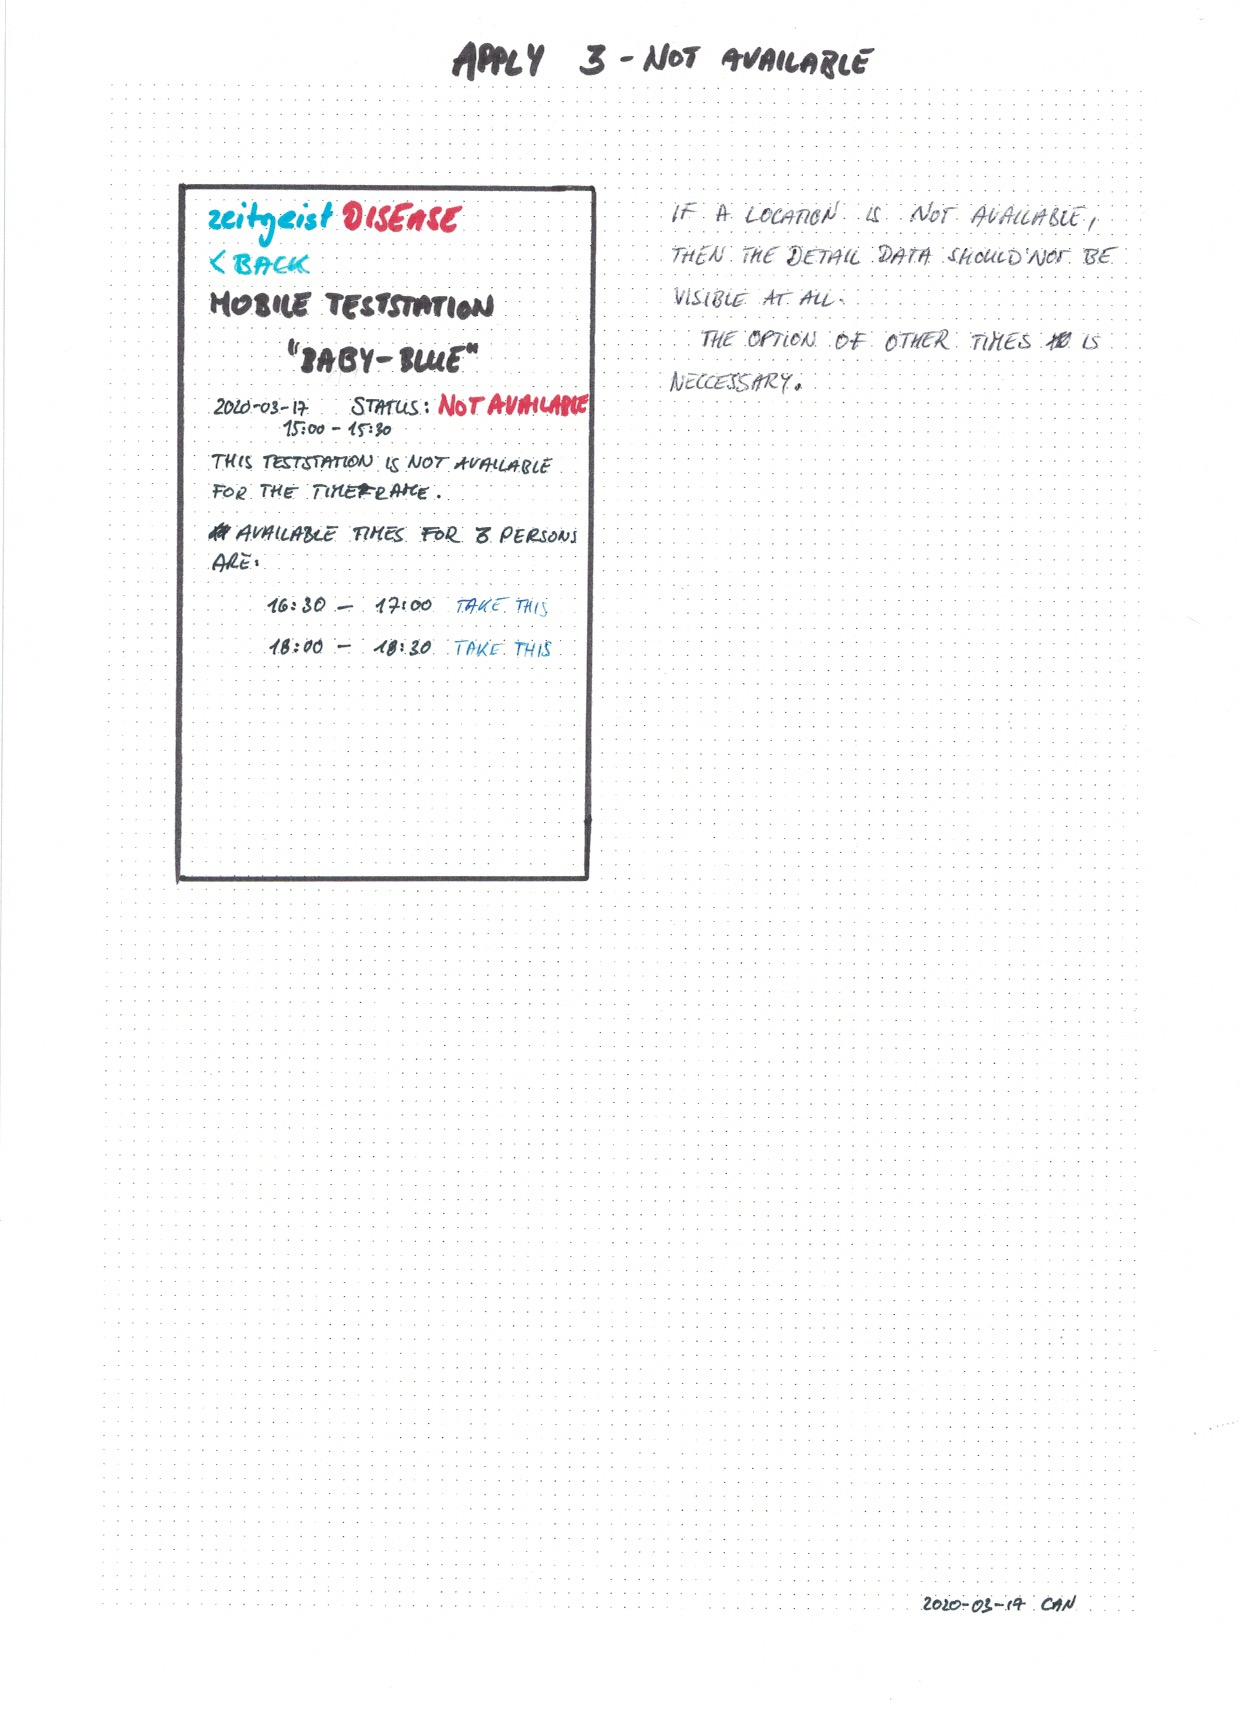 APPLY 3 - NOT AVAILABLE
zeitgeist DISEASE
< BACK
MOBILE TESTSTATION
"BABY-BLUE"
2020-03-17 STATUS: NOT AVAILABLE
15:00 - 15:30
THIS TESTSTATION IS NOT AVAILABLE
FOR THE TIMEFRAME.
AVAILABLE TIMES FOR 3 PERSONS
ARE:
16:30 - 17:00 TAKE THIS
18:00 - 18:30 TAKE THIS
IF A LOCATION IS NOT AVAILABLE,
THEN THE DETAIL DATA SHOULD NOT BE
VISIBLE AT ALL.
THE OPTION OF OTHER TIMES IS
NECCESSARY.
2020-03-17 CAN